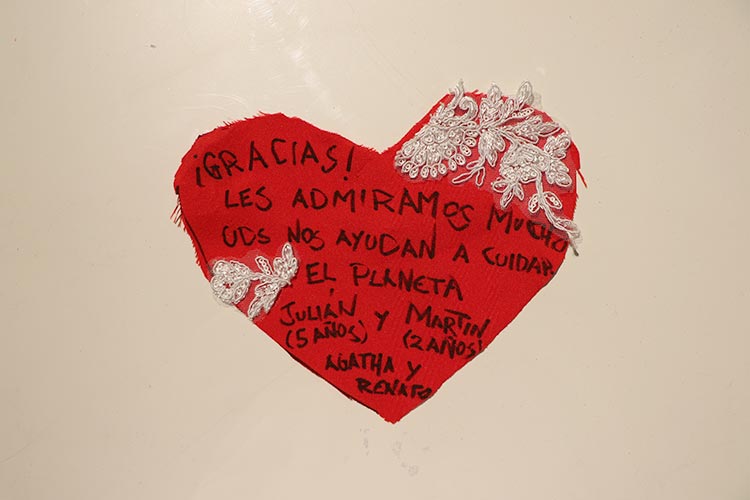 ¡GRACIAS!
LES ADMIRAMOS MUCHO
UDS NOS AYUDAN A CUIDAR
EL PLANETA
JULIÁN Y MARTIN
(5 AÑOS) (2 AÑOS)
AGATHA Y
RENATO